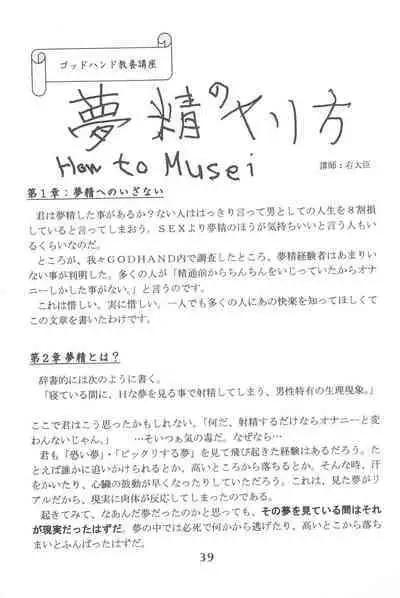 ゴッドハンド教養講座
夢精のヤリ方
How to Musei
講師：右大臣
第1章：夢精へのいざない
君は夢精した事があるか？ない人ははっきり言って男としての人生を8割損
していると言ってしまおう。SEXより夢精のほうが気持ちいいと言う人もい
るくらいなのだ。
ところが、我々GODHAND内で調査したところ、夢精経験者はあまりい
ない事が判明した。多くの人が「精通前からちんちんをいじっていたからオナ
ニーしかした事がない。」と言うのです。
これは惜しい、実に惜しい。一人でも多くの人にあの快楽を知ってほしくて
この文章を書いたわけです。
第2章 夢精とは？
辞書的には次のように書く。
「寝ている間に、Hな夢を見る事で射精してしまう、男性特有の生理現象。」
ここで君はこう思ったかもしれない。「何だ、射精するだけならオナニーと変
わんないじゃん。」　…そいつぁ気の毒だ。なぜなら…
君も『恐い夢』・『ビックリする夢』を見て飛び起きた経験はあるだろう。た
とえば誰かに追いかけられるとか、高いところから落ちるとか。そんな時、汗
をかいたり、心臓の鼓動が早くなったりしていただろう。これは、見た夢がリ
アルだから、現実に肉体が反応してしまったのである。
起きてみて、なあんだ夢だったのかと思っても、その夢を見ている間はそれ
が現実だったはずだ。夢の中では必死で何かから逃げたり、高いとこから落ち
まいとふんばったはずだ。
39